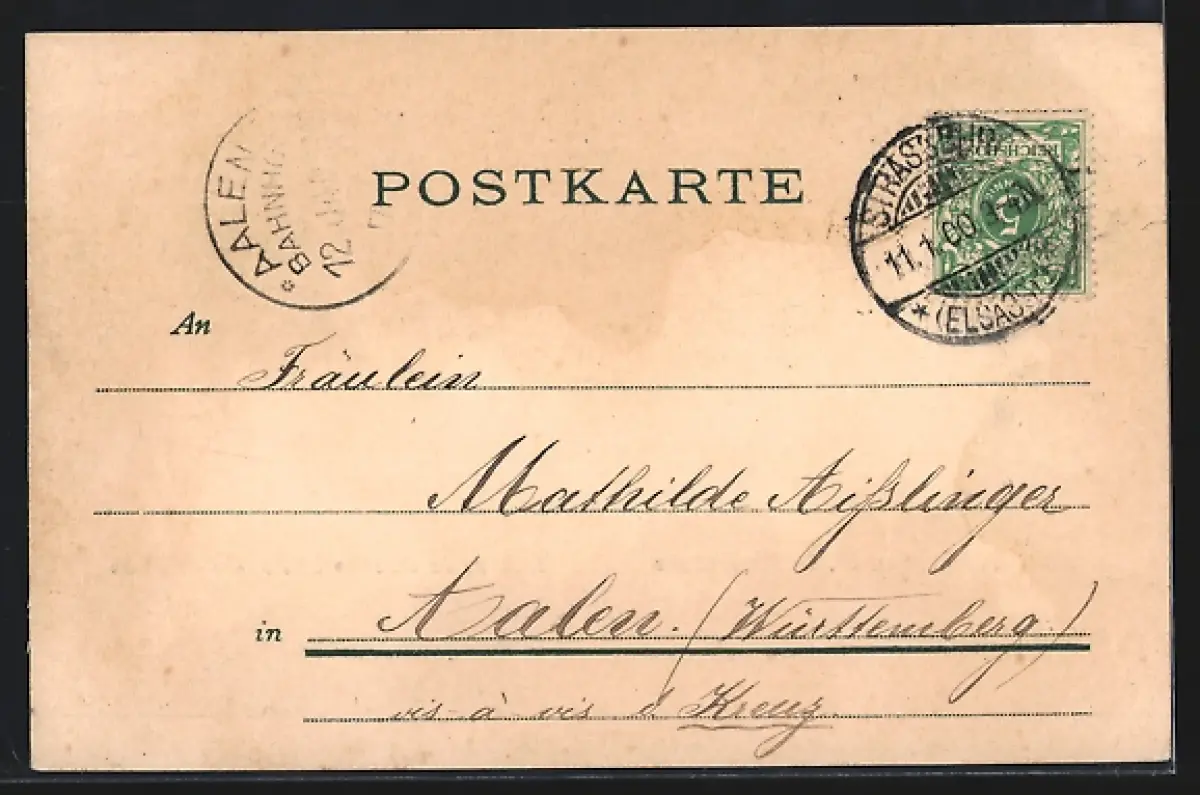 AALEN
* BAHNH
12 JAN
POSTKARTE
REICHSPOST
5
STRASSBURG
11.1.00
* (ELSASS)
An
Fräulein
Mathilde Aißlinger
in Aalen. (Württemberg)
vis-à vis d Kreuz.